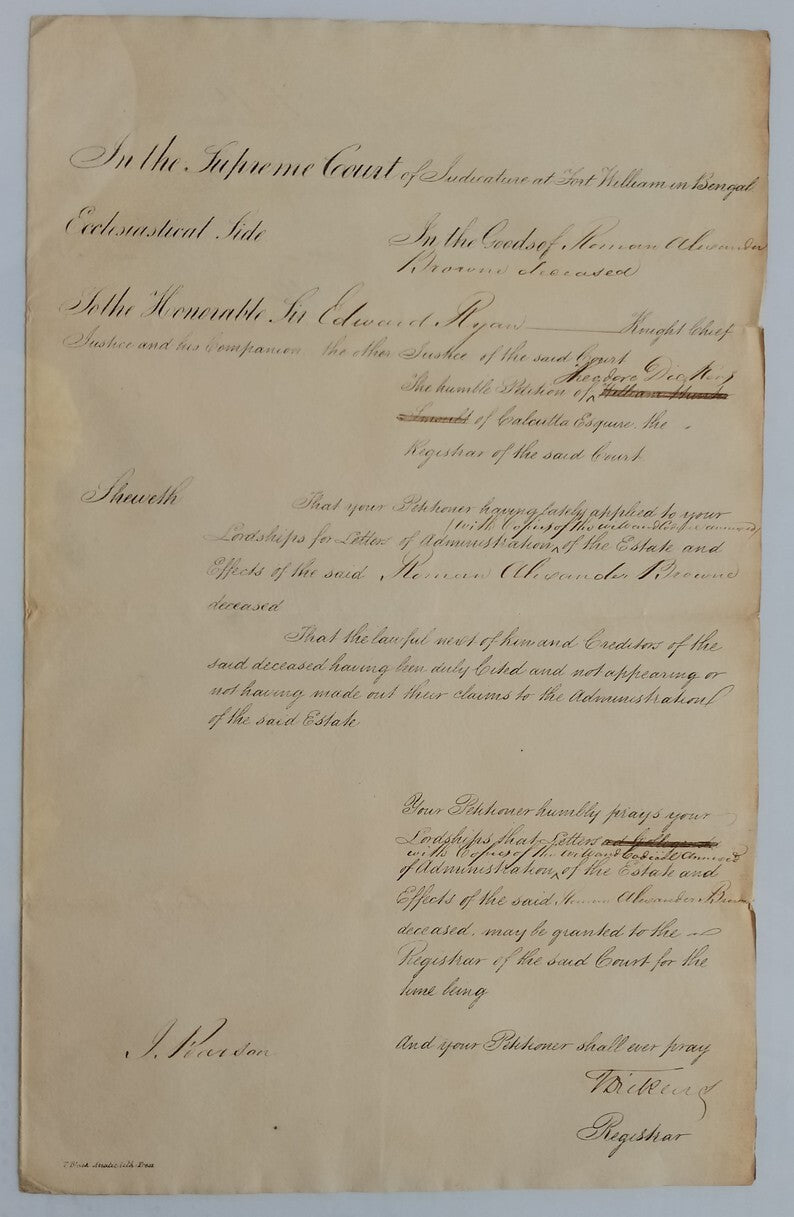 In the Supreme Court of Judicature at Fort William in Bengal
Ecclesiastical Side
In the Goods of Roman Alexander
Browne deceased
To the Honorable Sir Edward Ryan Knight Chief
Justice and his Companion the other Justice of the said Court
Theodore Dickens
The humble Petition of ^ William Hunter
Smoult of Calcutta Esquire, the
Registrar of the said Court
Sheweth
That your Petitioner having lately applied to your
(with Copies of the will and Codicil annexed)
Lordships for Letters of Administration ^ of the Estate and
Effects of the said Roman Alexander Browne
deceased
That the lawful next of kin and Creditors of the
said deceased having been duly Cited and not appearing or
not having made out their claims to the Administration
of the said Estate
Your Petitioner humbly prays your
Lordships that Letters ad Colligenda
with Copies of the will and Codicil annexed
of Administration ^ of the Estate and
Effects of the said Roman Alexander Browne
deceased, may be granted to the
Registrar of the said Court for the
time being
And your Petitioner shall ever pray
J. Pearson
TDickens
Registrar
T Black Asiatic Lith. Press